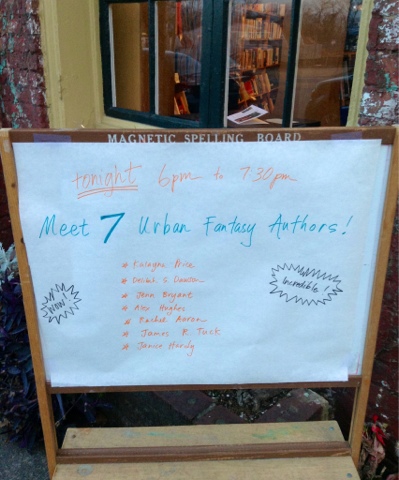 MAGNETIC SPELLING BOARD
tonight 6pm to 7:30pm
Meet 7 Urban Fantasy Authors!
* Kalayna Price
* Delilah S. Dawson
* Jenn Bryant
* Alex Hughes
* Rachel Aaron
* James R. Tuck
* Janice Hardy
WOW!
Incredible!